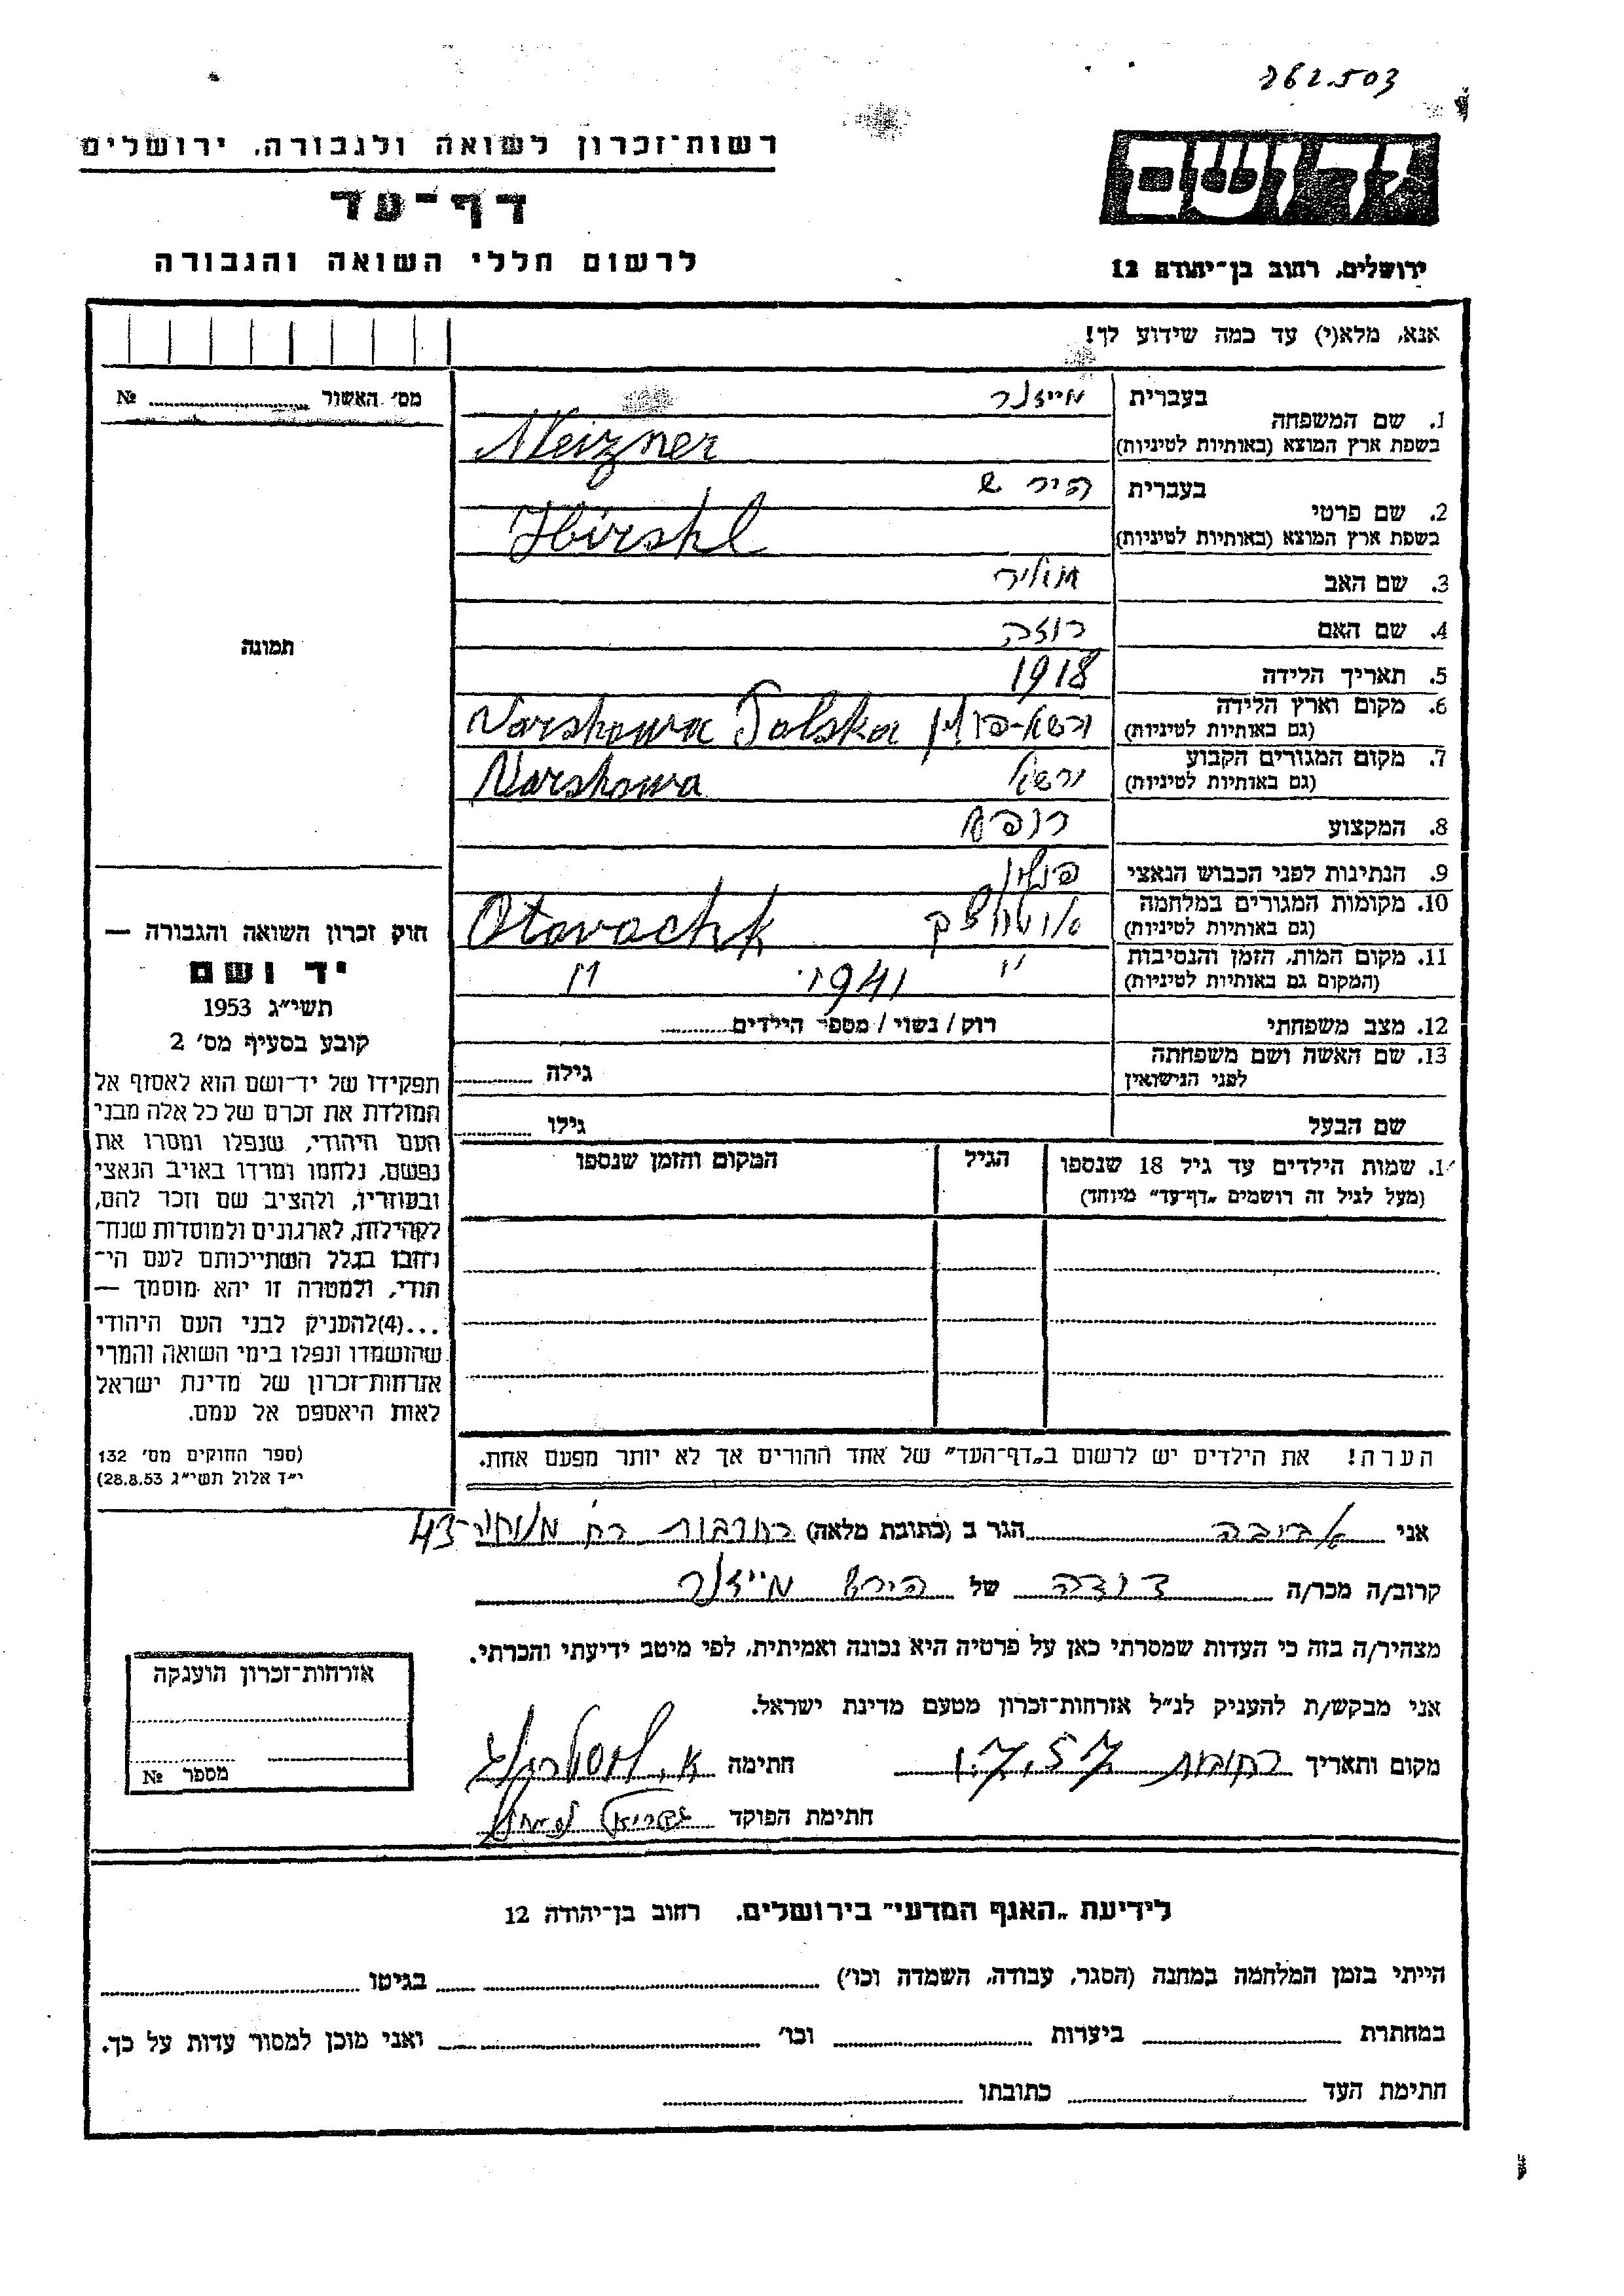 262.503
יד ושם
ירושלים, רחוב בן־יהודה 12
רשות־זכרון לשואה ולגבורה, ירושלים
דף־עד
לרשום חללי השואה והגבורה
אנא, מלא(י) עד כמה שידוע לך!
מס׳ האשור № 
1. שם המשפחה
בעברית מייזנר
בשפת ארץ המוצא (באותיות לטיניות) Meizner
2. שם פרטי
בעברית הירש
בשפת ארץ המוצא (באותיות לטיניות) Hirshl
3. שם האב
4. שם האם רוזה
5. תאריך הלידה 1918
6. מקום וארץ הלידה ורשא-פולין Varshowa Polska
(גם באותיות לטיניות)
7. מקום המגורים הקבוע ורשא Varshowa
(גם באותיות לטיניות)
8. המקצוע רופא
9. הנתינות לפני הכבוש הנאצי פולין
10. מקומות המגורים במלחמה אוטווצק Otovachk
(גם באותיות לטיניות)
11. מקום המות, הזמן והנסיבות " 1941 "
(המקום גם באותיות לטיניות)
12. מצב משפחתי רוק / נשוי / מספר הילדים
13. שם האשה ושם משפחתה
לפני הנישואין גילה
שם הבעל גילו
1. שמות הילדים עד גיל 18 שנספו הגיל המקום והזמן שנספו
(מעל לגיל זה רושמים „דף־עד” מיוחד)
הערה! את הילדים יש לרשום ב„דף־העד” של אחד ההורים אך לא יותר מפעם אחת.
תמונה
חוק זכרון השואה והגבורה —
יד ושם
תשי״ג 1953
קובע בסעיף מס׳ 2
תפקידו של יד־ושם הוא לאסוף אל
המולדת את זכרם של כל אלה מבני
העם היהודי, שנפלו ומסרו את
נפשם, נלחמו ומרדו באויב הנאצי
ובעוזריו, ולהציב שם וזכר להם,
לקהילות, לארגונים ולמוסדות שנח־
רחבו בגלל השתייכותם לעם הי־
הודי, ולמטרה זו יהא מוסמך —
...(4)להעניק לבני העם היהודי
שהושמדו ונפלו בימי השואה והמרי
אזרחות־זכרון של מדינת ישראל
לאות היאספם אל עמם.
(ספר החוקים מס׳ 132
י״ד אלול תשי״ג 28.8.53)
אני אביבה הגר ב (כתובת מלאה) רחובות רח׳ 43
קרוב/ה מכר/ה דודה של הירש מייזנר
מצהיר/ה בזה כי העדות שמסרתי כאן על פרטיה היא נכונה ואמיתית, לפי מיטב ידיעתי והכרתי.
אני מבקש/ת להעניק לנ״ל אזרחות־זכרון מטעם מדינת ישראל.
מקום ותאריך רחובות 1.7.57 חתימה
חתימת הפוקד
אזרחות־זכרון הוענקה
מספר №
לידיעת „האגף המדעי” בירושלים, רחוב בן־יהודה 12
הייתי בזמן המלחמה במחנה (הסגר, עבודה, השמדה וכו׳) בגיטו
במחתרת ביערות וכו׳ ואני מוכן למסור עדות על כך.
חתימת העד כתובתו